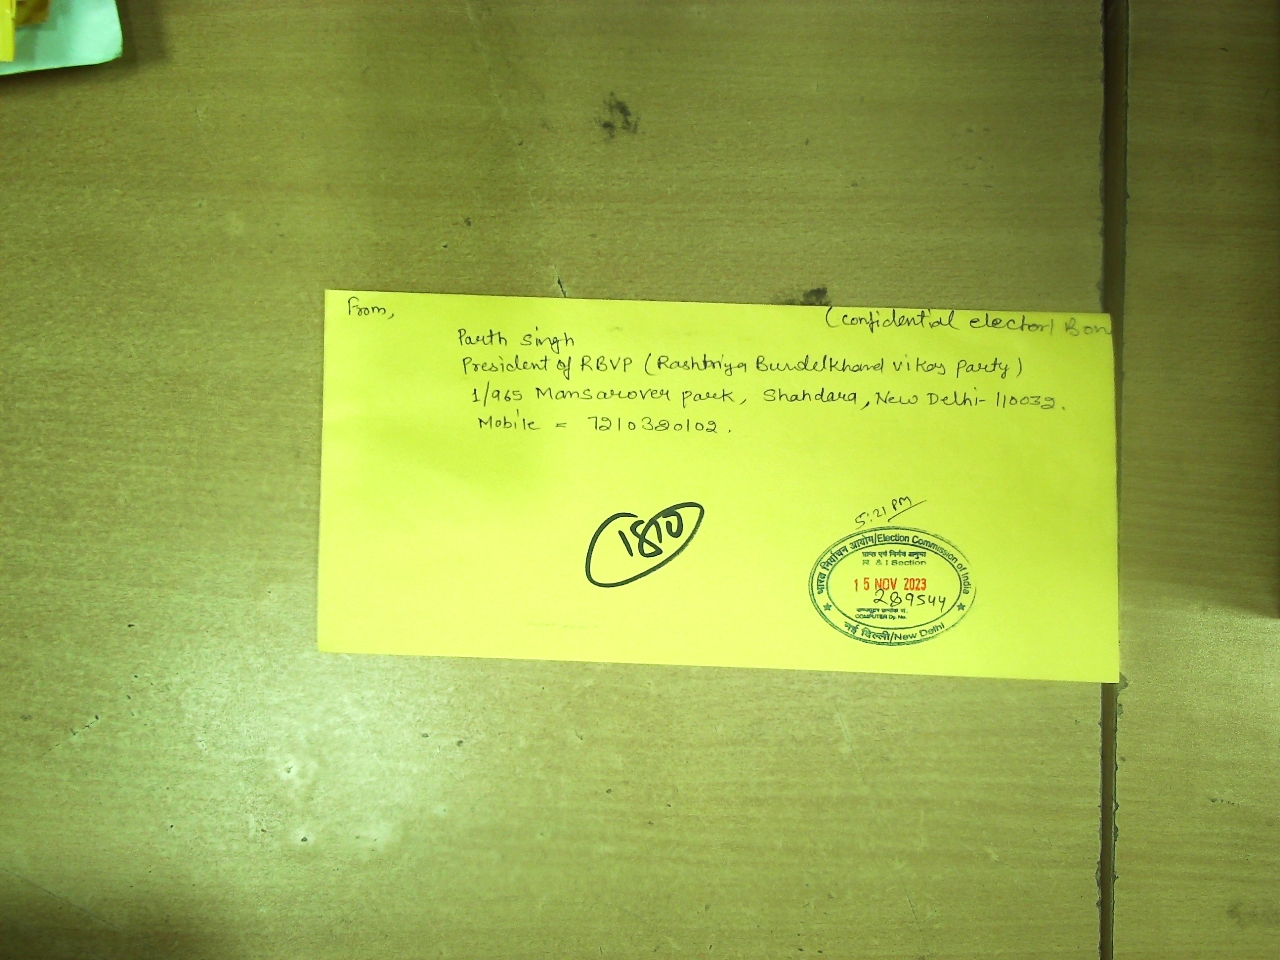 From,
(Confidential electoral Bon
Parth Singh
President of RBVP (Rashtriya Bundelkhand vikas party)
1/965 Mansarover park, Shahdara, New Delhi- 110032.
Mobile = 7210320102.
1810
5:21 PM
भारत निर्वाचन आयोग/Election Commission of India
प्राप्त एवं निर्गम अनुभाग
R. & I Section
15 NOV 2023
289544
कम्प्यूटर डायरी सं.
COMPUTER Dy. No.
नई दिल्ली/New Delhi